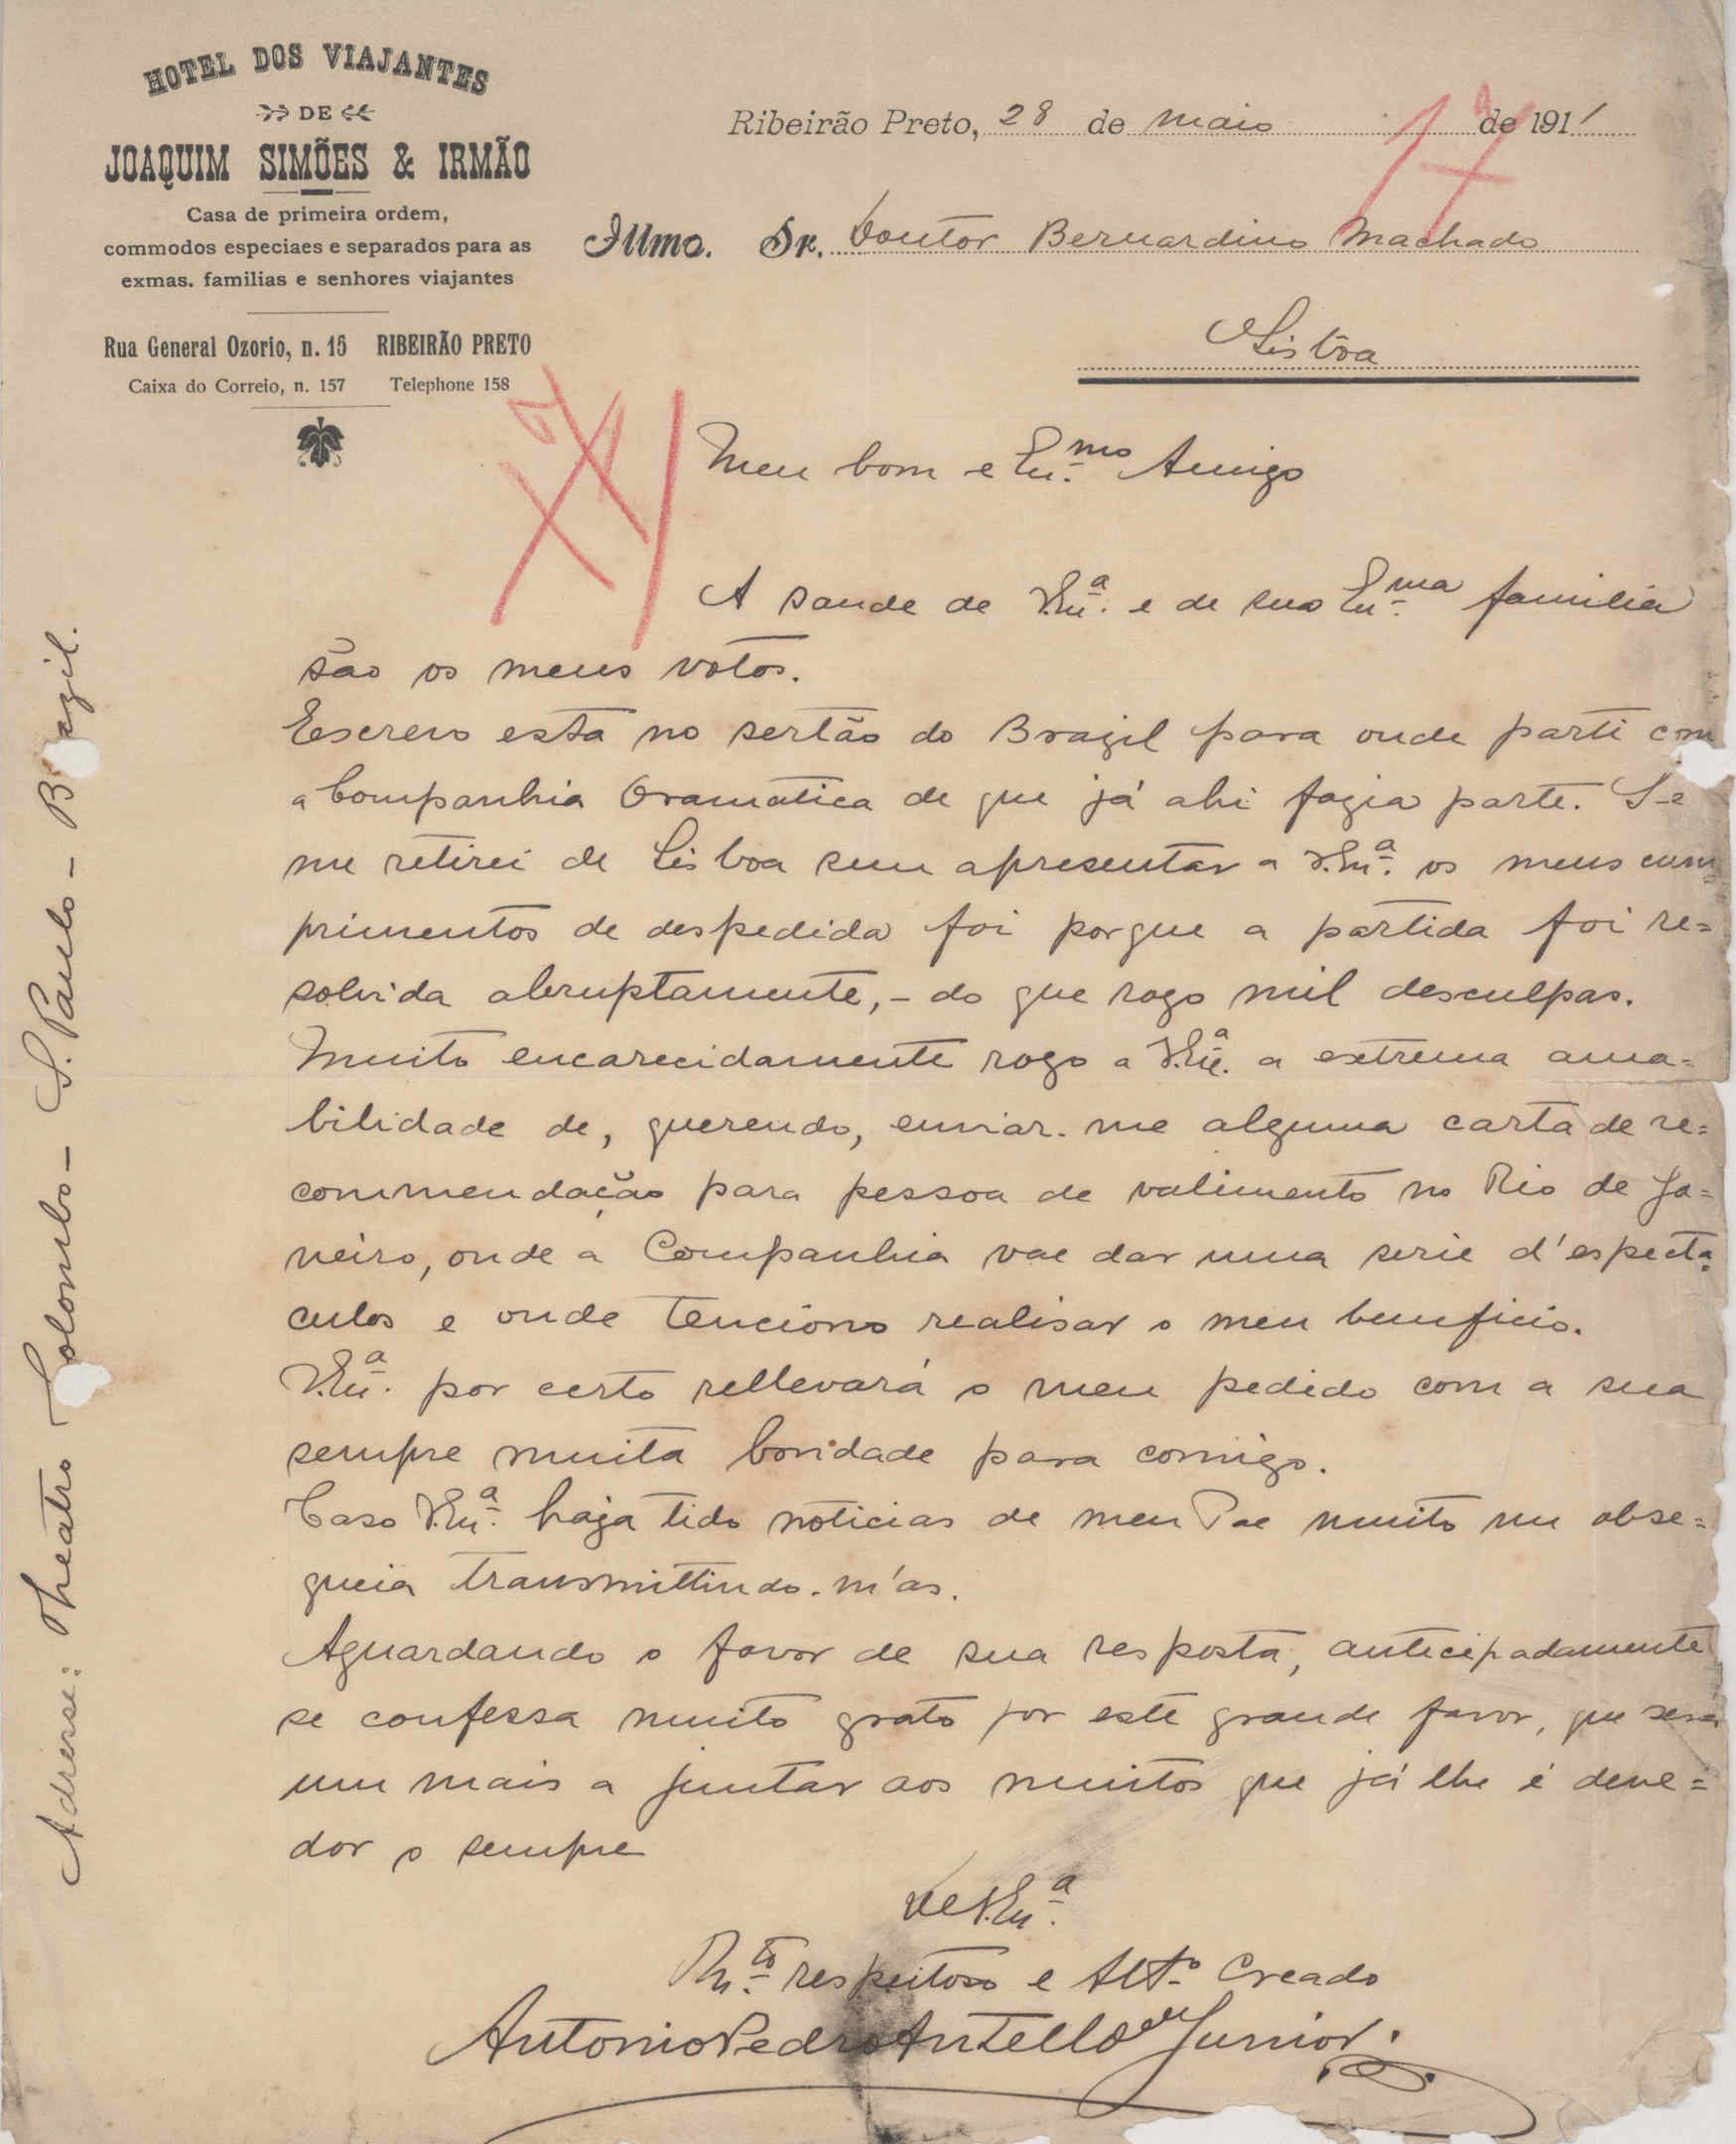 HOTEL DOS VIAJANTES
DE
JOAQUIM SIMÕES & IRMÃO
Casa de primeira ordem,
commodos especiaes e separados para as
exmas. familias e senhores viajantes
Rua General Ozorio, n. 15 RIBEIRÃO PRETO
Caixa do Correio, n. 157 Telephone 158
Ribeirão Preto, 28 de maio de 1911
Illmo. Sr. Doutor Bernardino Machado
Lisboa
Meu bom e Ex.mo Amigo
A saude de V.Ex.ª e de sua Ex.ma familia
são os meus votos.
Escrevo esta no sertão do Brazil para onde parti com
a Companhia Dramatica de que já ahi fazia parte. Se
me retirei de Lisboa sem apresentar a V.Ex.ª os meus cum
primentos de despedida foi porque a partida foi re=
solvida abruptamente,- do que rogo mil desculpas.
Muito encarecidamente rogo a V.Ex.ª a extrema ama=
bilidade de, querendo, enviar-me alguma carta de re=
commendação para pessoa de valimento no Rio de Ja=
neiro, onde a Companhia vae dar uma serie d'especta=
culos e onde tenciono realisar o meu beneficio.
V.Ex.ª por certo rellevará o meu pedido com a sua
sempre muita bondade para comigo.
Caso V.Ex.ª haja tido noticias de meu Pae muito me obse=
queia transmittindo-m'as.
Aguardando o favor de sua resposta, antecipadamente
se confessa muito grato por este grande favor, que será
um mais a juntar aos muitos que já lhe é deve=
dor o sempre
de V.Ex.ª
M.to respeitoso e Att.o Creado
Antonio Pedro Antello Junior.
Adresse: Theatro Colombo - S. Paulo - Brazil.